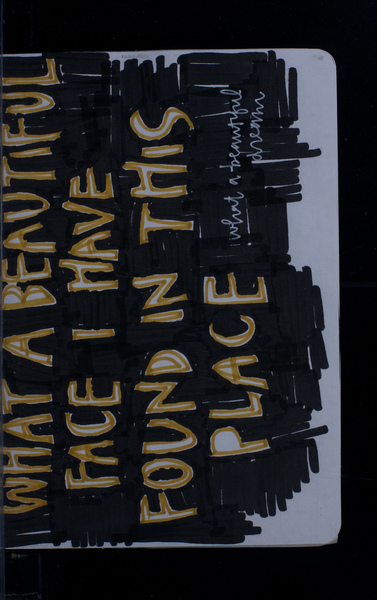 WHAT A BEAUTIFUL
FACE I HAVE
FOUND IN THIS
PLACE
what a beautiful
dream